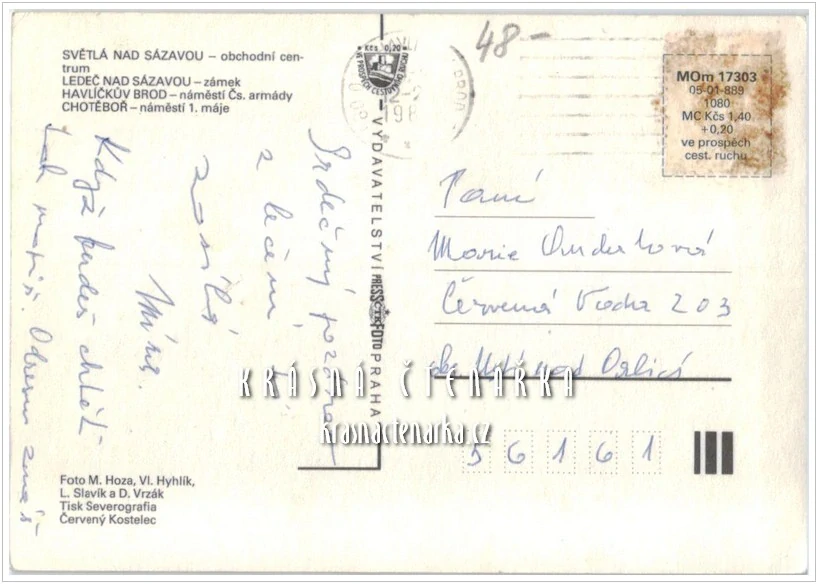 SVĚTLÁ NAD SÁZAVOU – obchodní cen-
trum
LEDEČ NAD SÁZAVOU – zámek
HAVLÍČKŮV BROD – náměstí Čs. armády
CHOTĚBOŘ – náměstí 1. máje
Kčs 0,20
VE PROSPĚCH CESTOVNÍHO RUCHU
48–
MOm 17303
05-01-889
1080
MC Kčs 1,40
+0,20
ve prospěch
cest. ruchu
Srdečný pozdrav
z léčení
zasílá
Mirka.
Když budeš chtít
tak napiš. Adresu znáš
VYDAVATELSTVÍ PRESSFOTO PRAHA
ČTK
Paní
Marie
Červená Voda 203
Ústí nad Orlicí
56161
KRÁSNÁ ČTENÁRKA
krasnactenarka.cz
Foto M. Hoza, Vl. Hyhlík,
L. Slavík a D. Vrzák
Tisk Severografia
Červený Kostelec